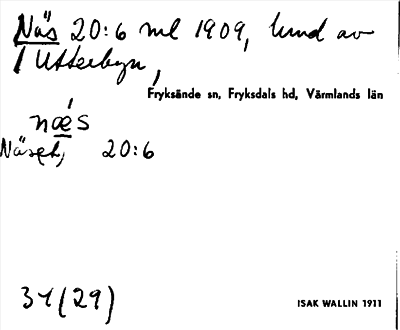 Näs 20:6 ml 1909, lund av
1 Utterbyn,
Fryksände sn, Fryksdals hd, Värmlands län
næ´s
Näset, 20:6
34 (29)
ISAK WALLIN 1911